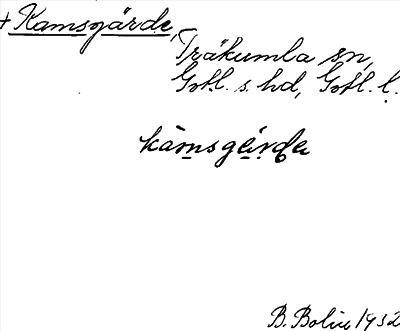 + Kamsgärde,
Träkumla sn,
Gotl. s. hd, Gotl. l.
kàmsgęrde
B. Bolin 1932